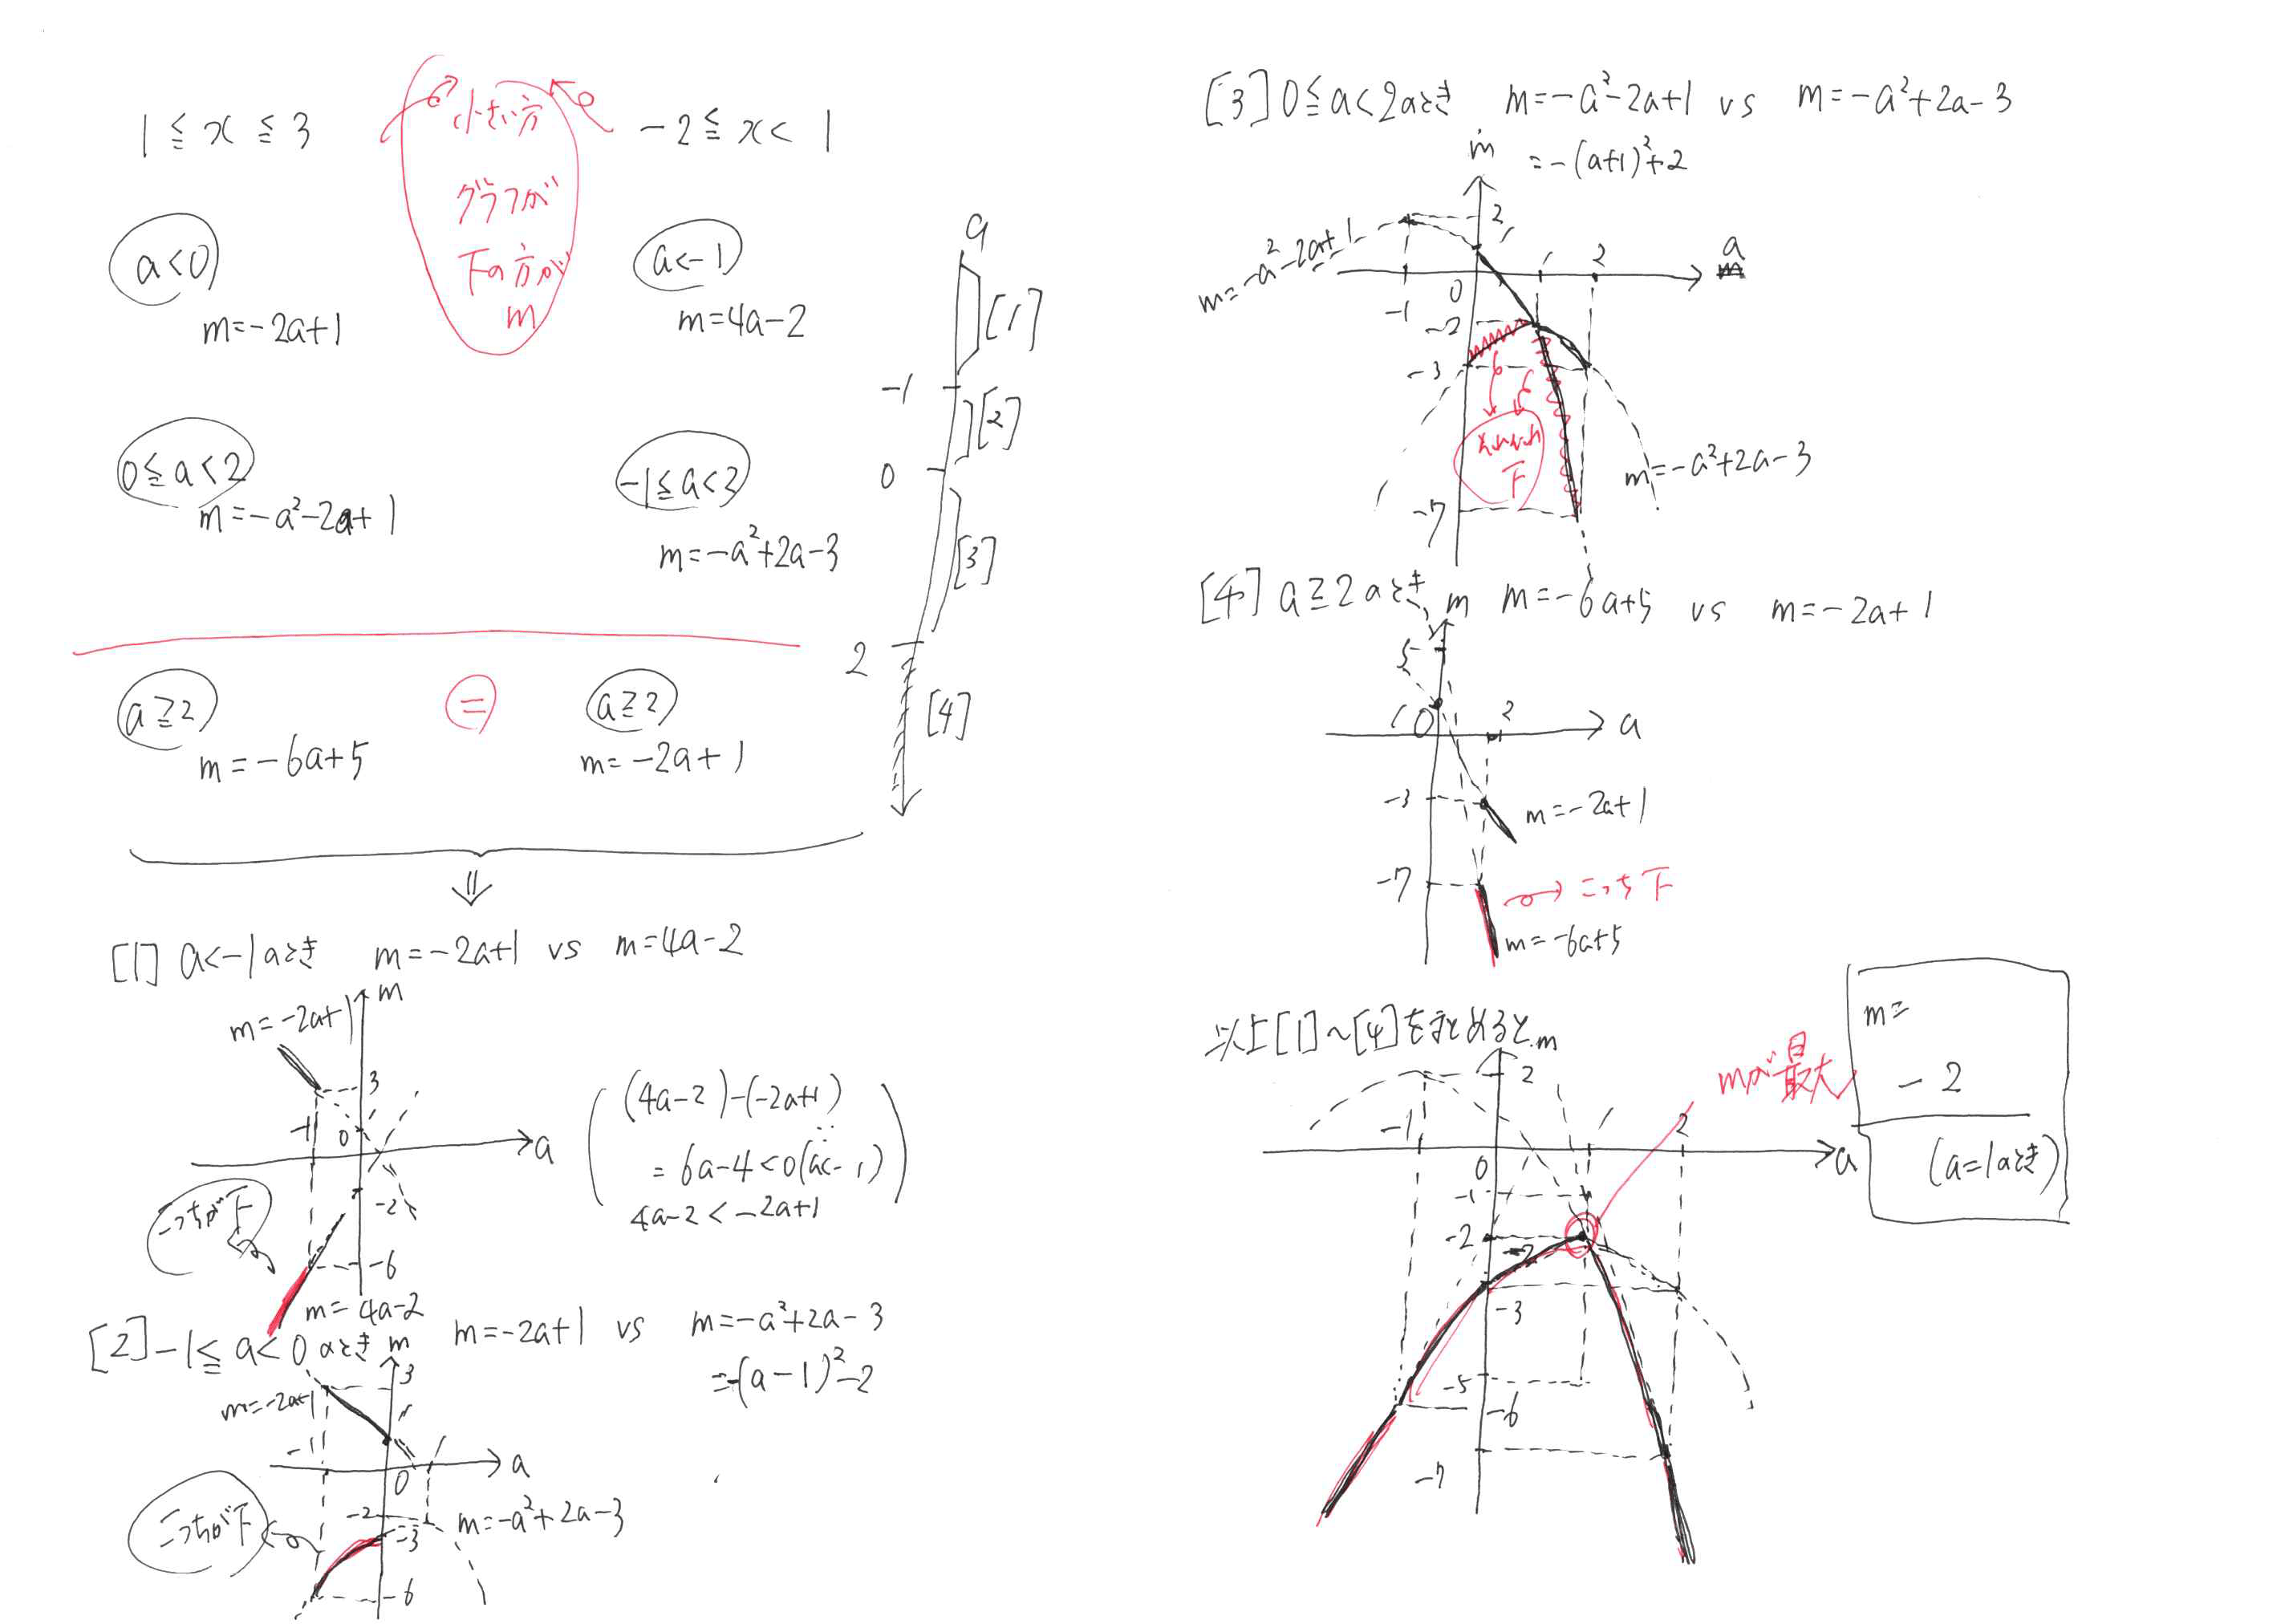 1≦x≦3
小さい方
グラフが
下の方が
m
-2≦x<1
a<0
m=-2a+1
a<-1
m=4a-2
0≦a<2
m=-a²-2a+1
-1≦a<2
m=-a²+2a-3
a≧2
m=-6a+5
=
a≧2
m=-2a+1
a
[1]
-1
[2]
0
[3]
2
[4]
⇓
[1] a<-1のとき m=-2a+1 vs m=4a-2
m
m=-2a+1
3
-1
0
a
-2
こっちが下
-6
m=4a-2
(4a-2)-(-2a+1)
=6a-4<0(a<-1)
4a-2<-2a+1
[2] -1≦a<0のとき m=-2a+1 vs m=-a²+2a-3
=-(a-1)²-2
m
3
m=-2a+1
1
-1
1
0
a
-2
-3
m=-a²+2a-3
こっちが下
-6
[3] 0≦a<2のとき m=-a²-2a+1 vs m=-a²+2a-3
=-(a+1)²+2
m
2
1
m=-a²-2a+1
1
2
a
0
-1
-2
-3
それぞれ
下
m=-a²+2a-3
-7
[4] a≧2のとき m=-6a+5 vs m=-2a+1
m
5
1
0
2
a
-3
m=-2a+1
-7
こっち下
m=-6a+5
以上[1]~[4]をまとめると
m
2
mが最大
-1
1
2
0
a
-1
-2
-2
-3
-5
-6
-7
m=
-2
(a=1のとき)